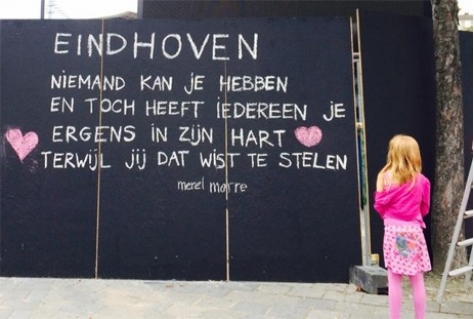 EINDHOVEN
NIEMAND KAN JE HEBBEN
EN TOCH HEEFT IEDEREEN JE
ERGENS IN ZIJN HART
TERWIJL JIJ DAT WIST TE STELEN
merel morre